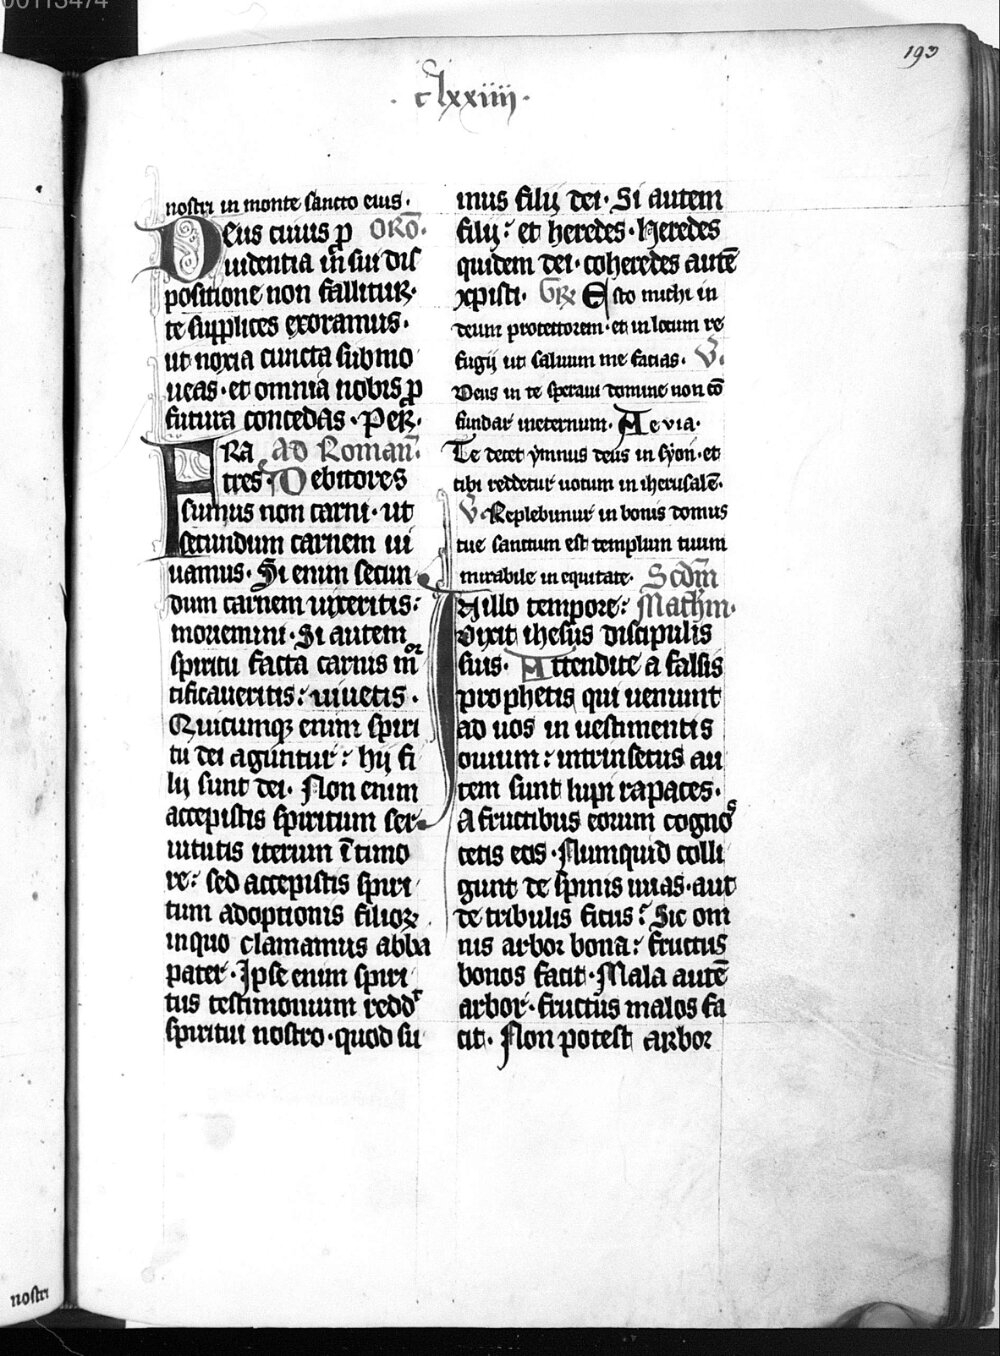 00113474
193
· clxxiiij ·
nostri in monte sancto eius ·
Deus cuius p orō ·
uidentia in sui dis
positione non fallitur ·
te supplices exoramus ·
ut noxia cuncta submo
ueas · et omnia nobis p
futura concedas · Per ·
FRA ad Roman̄ ·
tres · Debitores
sumus non carni · ut
secundum carnem ui
uamus · Si enim secun
dum carnem uixeritis :
moriemini · Si autem
spiritu facta carnis mor
tificaueritis : uiuetis ·
Quicumqꝫ enim spiri
tu dei aguntur : hij fi
lij sunt dei · Non enim
accepistis spiritum ser
uitutis iterum ī timo
re : sed accepistis spiri
tum adoptionis filioꝝ
inquo clamamus abba
pater · Ipse enim spiri
tus testimonium reddt
spiritui nostro · quod su
mus filij dei · Si autem
filij : et heredes · Heredes
quidem dei · coheredes autē
xpisti · GR Esto michi in
deum protectorem · et in locum re
fugij ut saluum me facias · V ·
Deus in te speraui domine non cō
fundar ineternum · Aevia ·
Te decet ymnus deus in syon · et
tibi reddetur uotum in iherusalē ·
V · Replebimur in bonis domus
tue sanctum est templum tuum
mirabile in equitate · Scdm
In illo tempore : Mathm ·
Dixit ihesus discipulis
suis · Attendite a falsis
prophetis qui ueniunt
ad uos in uestimentis
ouium : intrinsecus au
tem sunt lupi rapaces ·
A fructibus eorum cognos
cetis eos · Numquid colli
gunt de spinis uuas · aut
de tribulis ficus : Sic om
nis arbor bona : fructus
bonos facit · Mala autē
arbor · fructus malos fa
cit · Non potest arbor
nostri